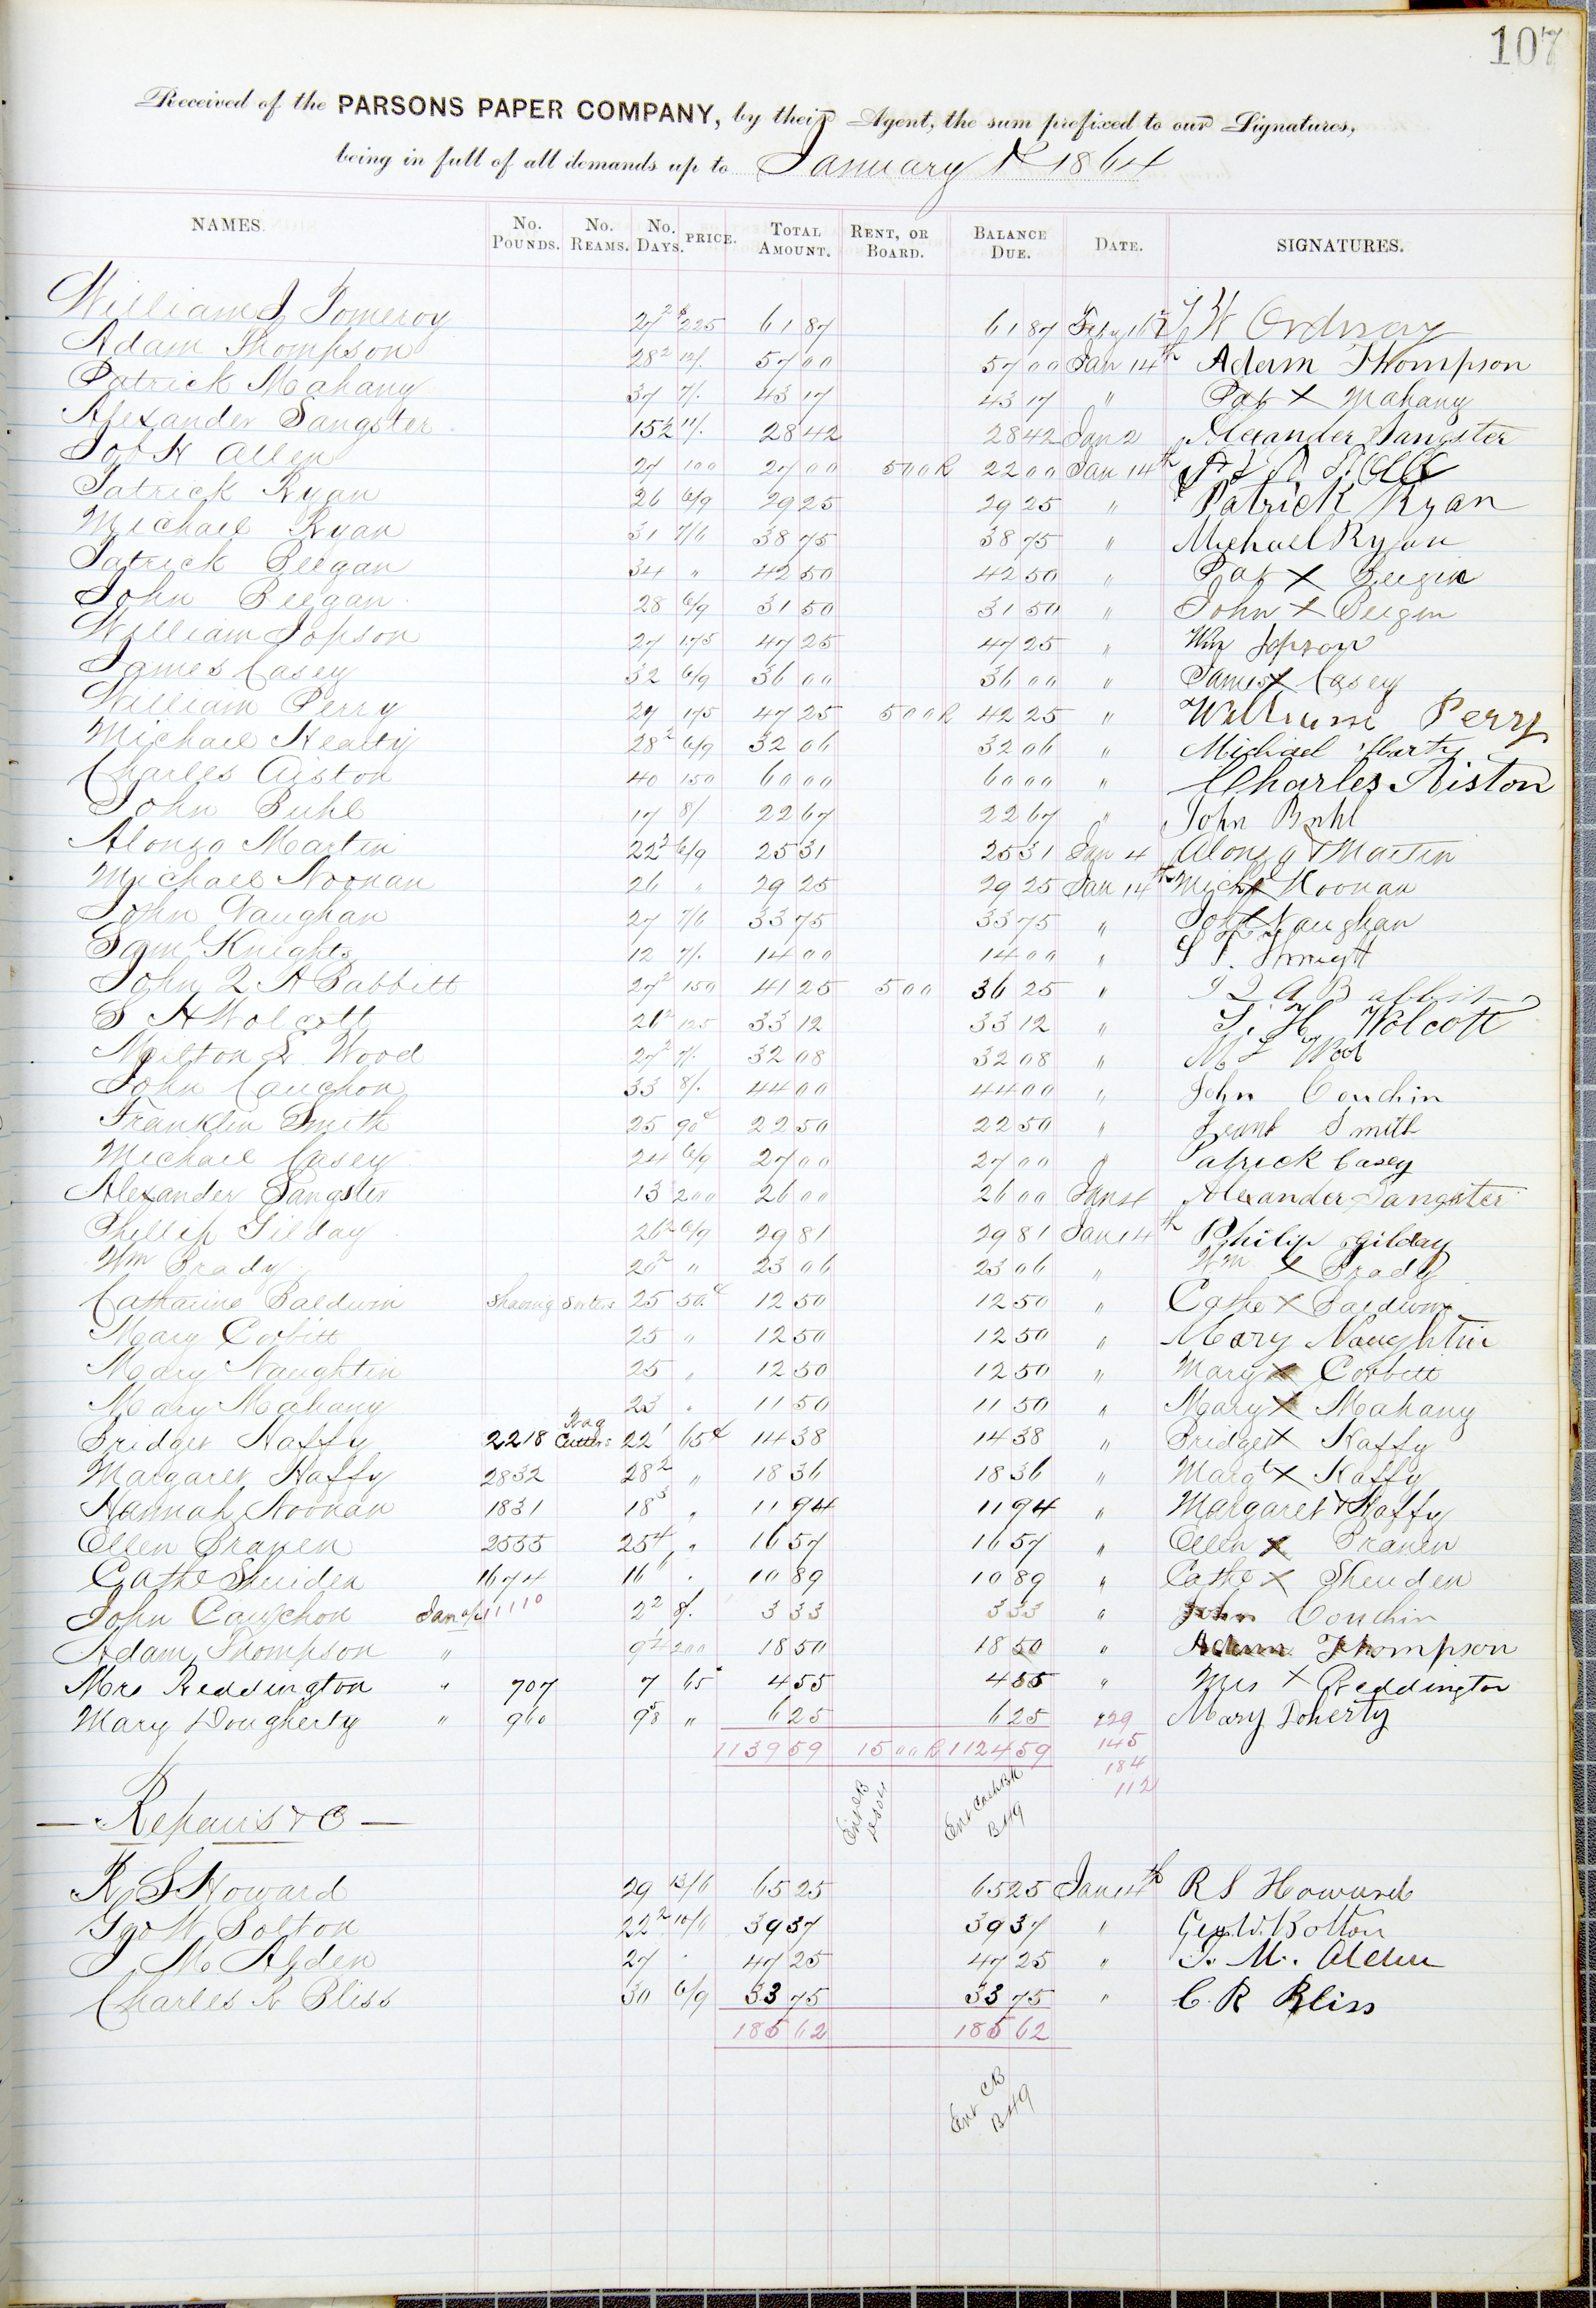 107
Received of the PARSONS PAPER COMPANY, by their Agent, the sum prefixed to our Signatures,
being in full of all demands up to January 1st 1864
NAMES. No. POUNDS. No. REAMS. No. DAYS. PRICE. TOTAL AMOUNT. RENT, OR BOARD. BALANCE DUE. DATE. SIGNATURES.
William J Pomeroy 27 2 $225 61 87 61 87 W Ordway
Adam Thompson 28 2 12/. 57 00 57 00 Jan 14th Adam Thompson
Patrick Mahany 37 7/. 43 17 43 17 " Pat X Mahany
Alexander Sangster 15 2 11/. 28 42 28 42 Jan 2 Alexander Sangster
Job H Allen 27 100 27 00 5 00 R 22 00 Jan 14th
Patrick Ryan 26 6/9 29 25 29 25 " Patrick Ryan
Michael Ryan 31 7/6 38 75 38 75 " Michael Ryan
Patrick Beegan 34 " 42 50 42 50 " Pat X Beegin
John Beegan 28 6/9 31 50 31 50 " John X Beegin
William Jopson 27 175 47 25 47 25 " Wm Jopson
James Casey 32 6/9 36 00 36 00 " James X Casey
William Perry 27 175 47 25 5 00 R 42 25 " William Perry
Michael Hearty 28 2 6/9 32 06 32 06 " Michael Harty
Charles Aiston 40 150 60 00 60 00 " Charles Aiston
John Buhl 17 8/ 22 67 22 67 " John Buhl
Alonzo Martin 22 2 6/9 25 31 25 31 Jan 4 Alonzo X Martin
Michael Noonan 26 " 29 25 29 25 Jan 14th Michl X Noonan
John Vaughan 27 7/6 33 75 33 75 " John X Vaughan
Saml Knights 12 7/. 14 00 14 00 "
John Q A Babbitt 27 2 150 41 25 5 00 36 25 " J Q A Babbitt
S H Wolcott 26 2 125 33 12 33 12 " S. H. Wolcott
Milton S. Wood 27 2 7/. 32 08 32 08 " M S Wood
John Cauchon 33 8/. 44 00 44 00 " John Couchin
Franklin Smith 25 90¢ 22 50 22 50 " Frank Smith
Michael Casey 24 6/9 27 00 27 00 " Patrick Casey
Alexander Sangster 13 200 26 00 26 00 Jan 4 Alexander Sangster
Phillip Gilday 26 2 6/9 29 81 29 81 Jan 14th Philip Gilday
Wm Brady 20 2 " 23 06 23 06 " Wm X Brady
Catharine Baldwin Shaving Sorters 25 50¢ 12 50 12 50 " Cathe X Baldwin
Mary Corbitt 25 " 12 50 12 50 " Mary Naughtin
Mary Naughtin 25 " 12 50 12 50 " Mary X Corbitt
Mary Mahany 23 " 11 50 11 50 " Mary X Mahany
Bridget Haffy 2218 Rag Cutters 22 1 65¢ 14 38 14 38 " Bridget X Haffy
Margaret Haffy 2832 28 2 " 18 36 18 36 " Margt X Haffy
Hannah Noonan 1831 18 3 " 11 94 11 94 " Margaret X Haffy
Ellen Branen 2555 25 4 " 16 57 16 57 " Ellen X Branen
Cathe Sheiden 1674 16 6 " 10 89 10 89 " Cathe X Sheuden
John Cauchon 2 2 8/. 3 33 3 33 " John Couchin
Adam Thompson " 9 1/4 200 18 50 18 50 " Adam Thompson
Mrs Reddington " 707 7 65 4 55 4 55 " Mrs X Reddington
Mary Dougherty " 960 9 5/8 " 6 25 6 25 Mary Doherty
1139 59 15 00 R 1124 59 145
184
112
Ent Cash Bk
B49
— Repairs & C —
R S Howard 29 13/6 65 25 65 25 Jan 14th R S Howard
Geo W Bolton 22 2 10/6 39 37 39 37 " Geo. W. Bolton
J M Alden 27 " 47 25 47 25 " J. M. Alden
Charles R Bliss 30 6/9 33 75 33 75 " C. R Bliss
185 62 185 62
Ent CB
B49